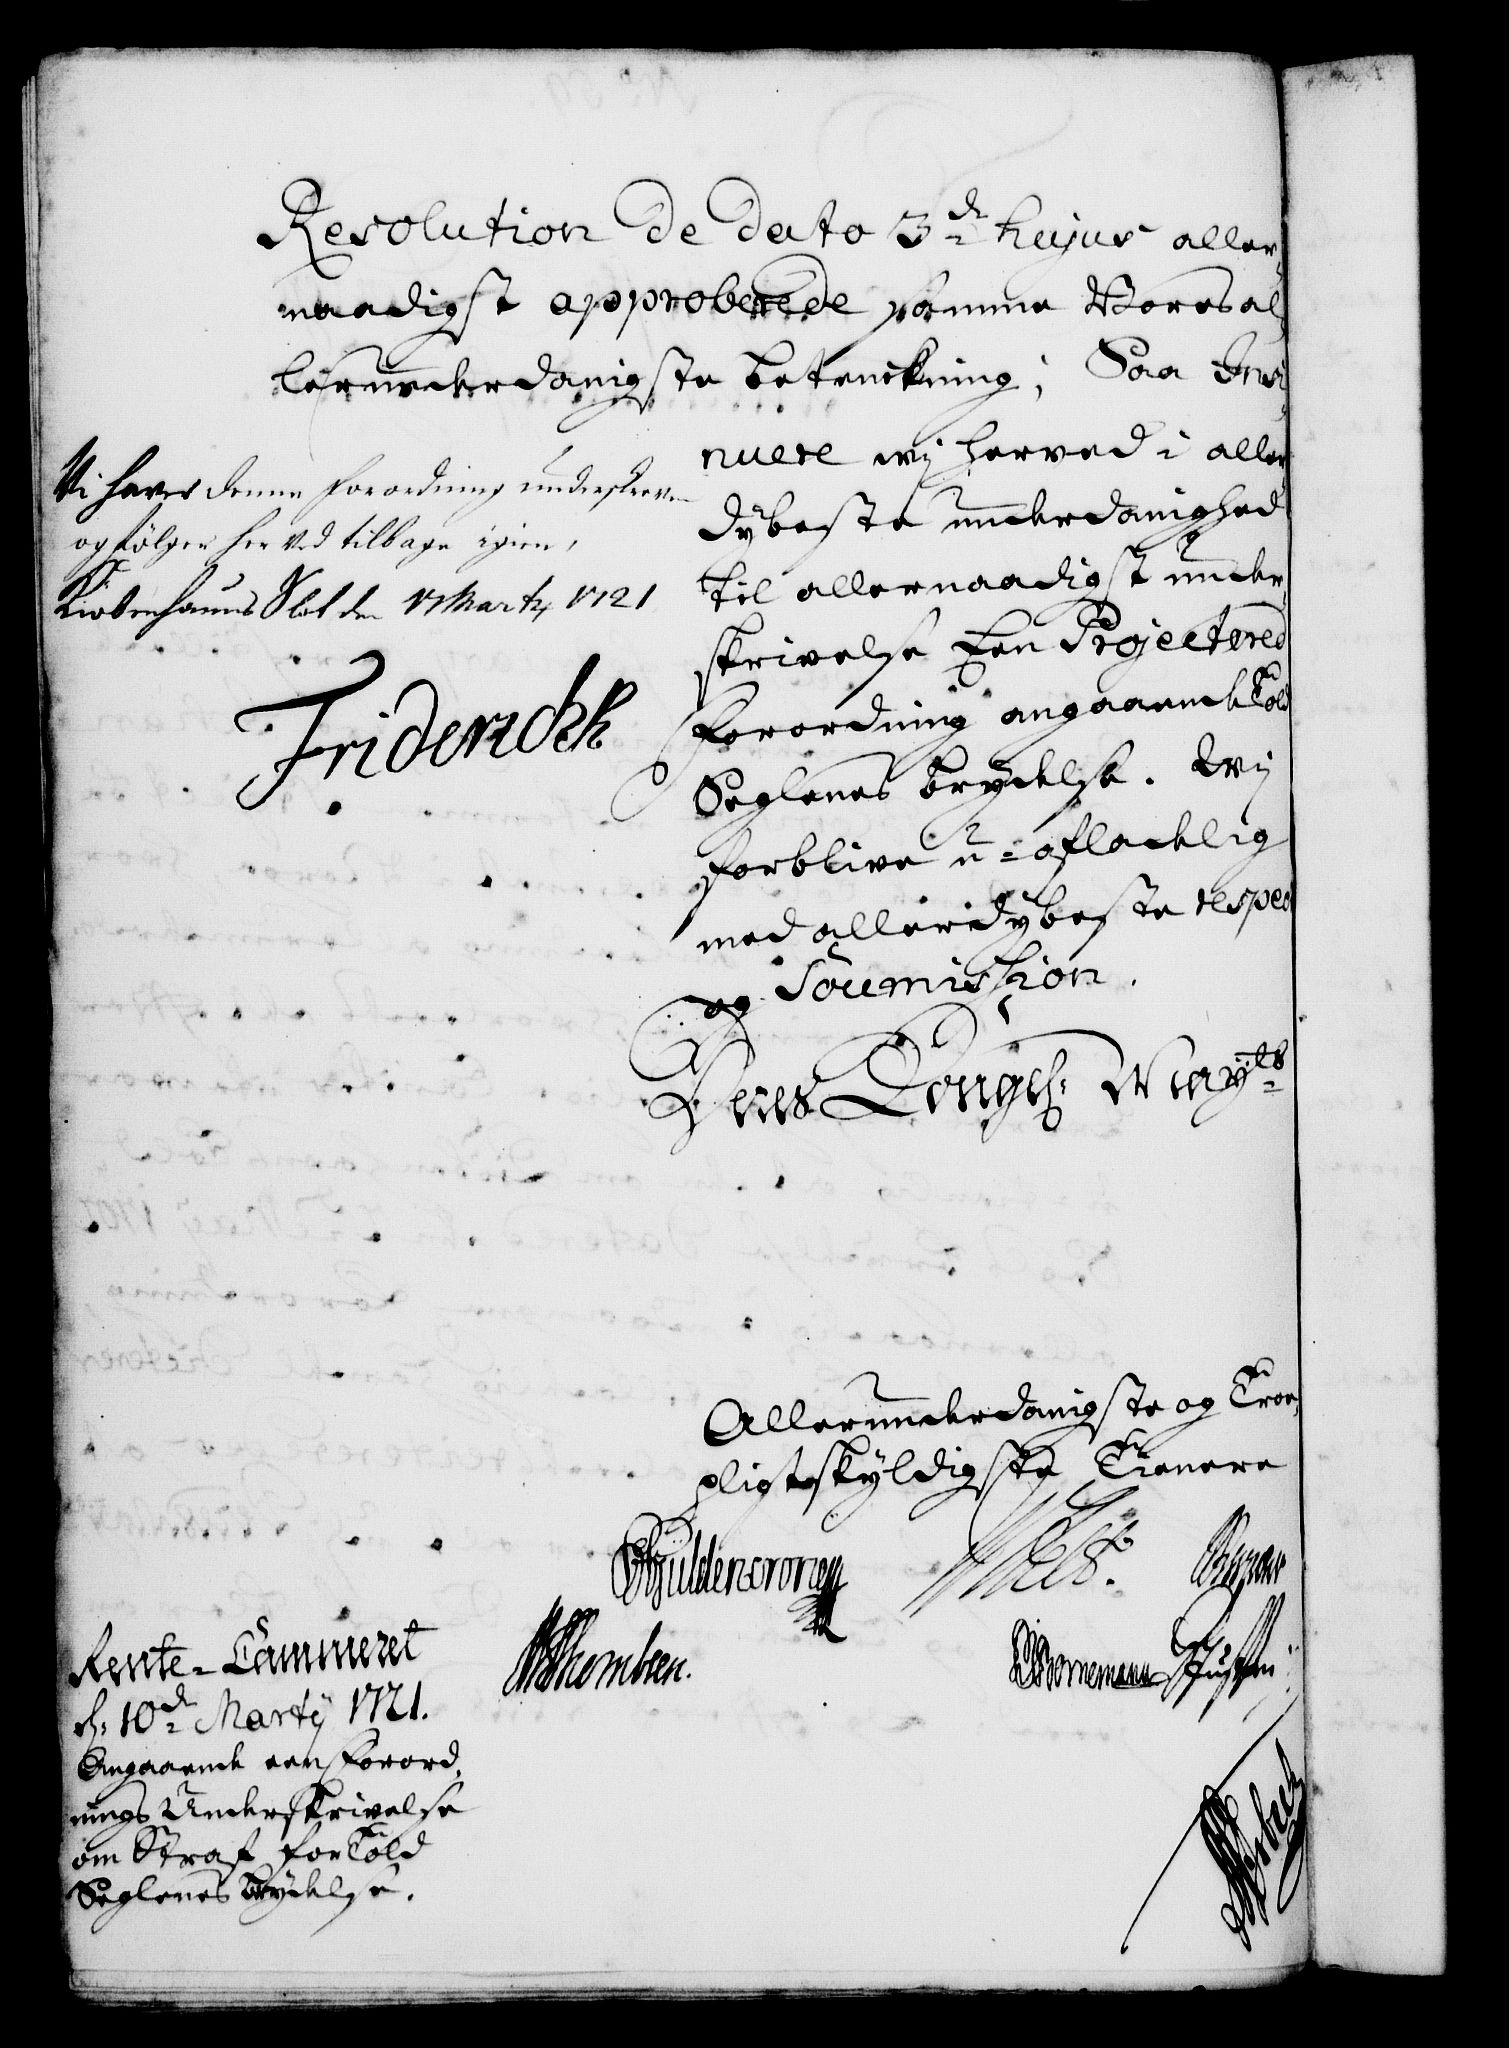 Resolution de dato 3dn hujus aller-
naadigst approberede samme Vores al-
lerunderdanigste betenckning; Saa Insi-
nuere wj herved i aller-
dybeste underdanighed
til allernaadigst under-
skrivelse Een Projectered
Forordning angaaende Told
Seglenes brydelse. Wij
forblive u-afladelig
med allerdybeste respect
og Soumission.
Deres Kongel: Mayts
Vi haver denne forordning underskreven
og følger her ved tilbage igien,
Kiøbenhauns Slot den 17 Marty 1721
Friderich
Allerunderdanigste og Troe
pligtskyldigste Tienere
Gyldencronen
Thomben.
Bornemann
Rente-Cammeret
d: 10dn Marty 1721.
Angaaende een Forord-
nings Underskrivelse
om Straf for Told
Seglenes brydelse.